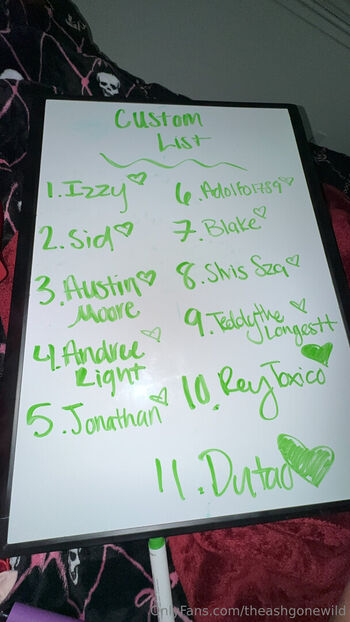 Custom
List
1. Izzy
2. Sid
3. Austin
Moore
4. Andree
Right
5. Jonathan
6. Adolfo1789
7. Blake
8. Shis Sza
9. Teddythe
Longestt
10. ReyToxico
11. Dutao
OnlyFans.com/theashgonewild